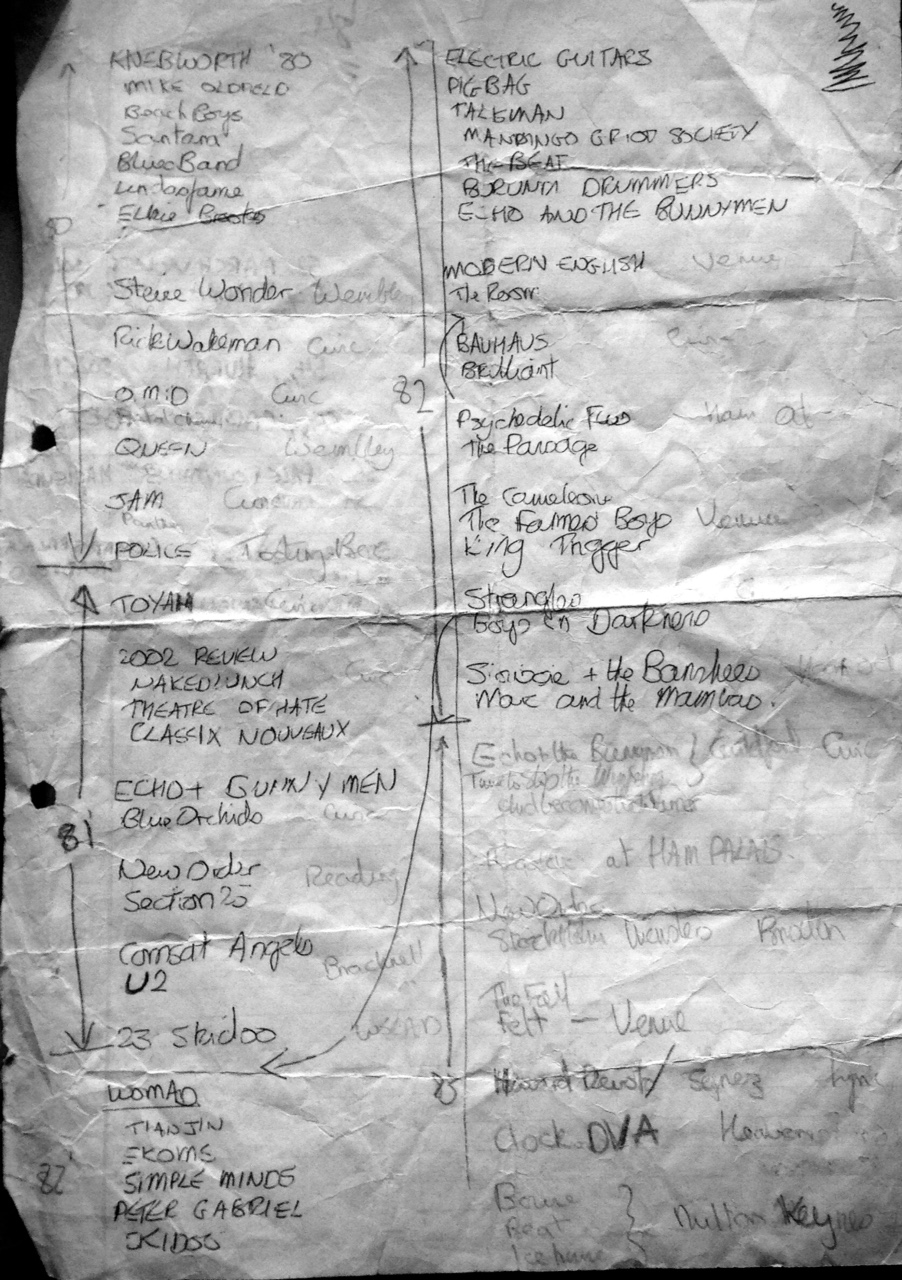 KNEBWORTH '80
MIKE OLDFIELD
Beach Boys
Santana
Blues Band
Lindisfarne
Elkie Brooks
80
Stevie Wonder Wembley
Rick Wakeman Civic
OMD Civic
QUEEN Wembley
JAM
POLICE Tooting Bec
TOYAH
2002 REVIEW
NAKED LUNCH Civic
THEATRE OF HATE
CLASSIX NOUVEAUX
ECHO + BUNNYMEN
Blue Orchids Civic
81
New Order Reading
Section 25
Comsat Angels Bracknell
U2
23 Skidoo
WOMAD
TIANJIN
EKOME
82
SIMPLE MINDS
PETER GABRIEL
SKIDOO
ELECTRIC GUITARS
PIGBAG
TALEMAN
MANDINGO GRIOT SOCIETY
THE BEAT
BURUNDI DRUMMERS
ECHO AND THE BUNNYMEN
MODERN ENGLISH Venue
The Room
BAUHAUS
Brilliant
82
Psychedelic Furs
The Parade
The
The Farmers Boys Venue
King Trigger
Stranglers
Boys in Darkness
Siouxsie + the Banshees
Marc and the Mambas.
Echo + the Bunnymen Guildford Civic
at HAM PALAIS
New Order
Stockholm Monsters Brixton
The Fall
Felt — Venue
83
Howard Devoto
Clock DVA Heaven
Bowie
Beat Milton Keynes
Icehouse